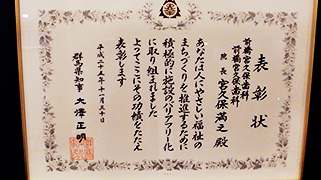 表彰状
前橋宮久保歯科
前橋宮久保歯科
院長 宮久保満之 殿
あなたは人にやさしい福祉の
まちづくりを推進するために
積極的に施設のバリアフリー化
に取り組まれました
よってここにその功績をたたえ
表彰します
平成二十五年十一月三十日
群馬県知事 大澤正明